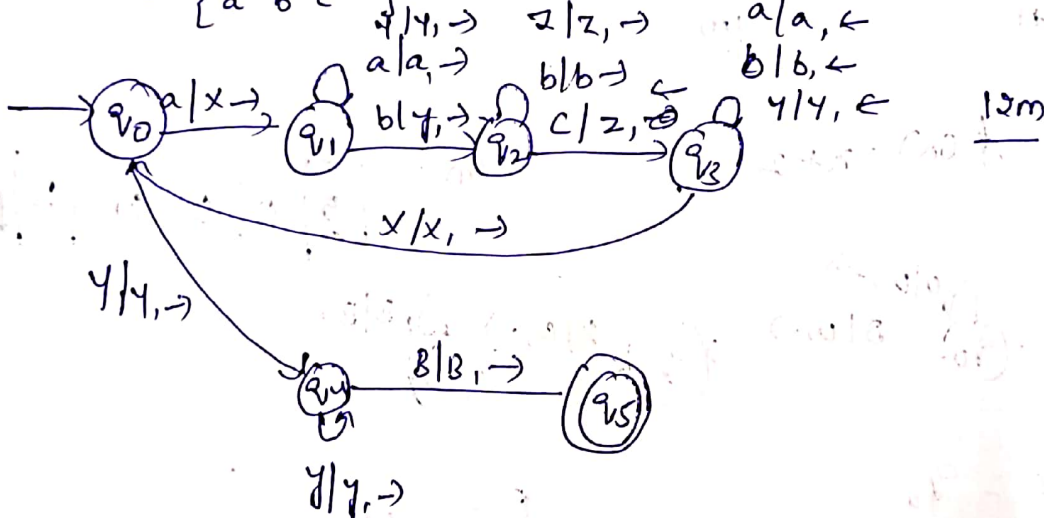 [ a b c
y/y, → z/z, → a/a, ←
a/a, → b/b → b/b, ←
q0 a/x → q1 b/y, → q2 c/z, ← q3 y/y, ← 12m
x/x, →
y/y, →
q4 B/B, → q5
y/y, →